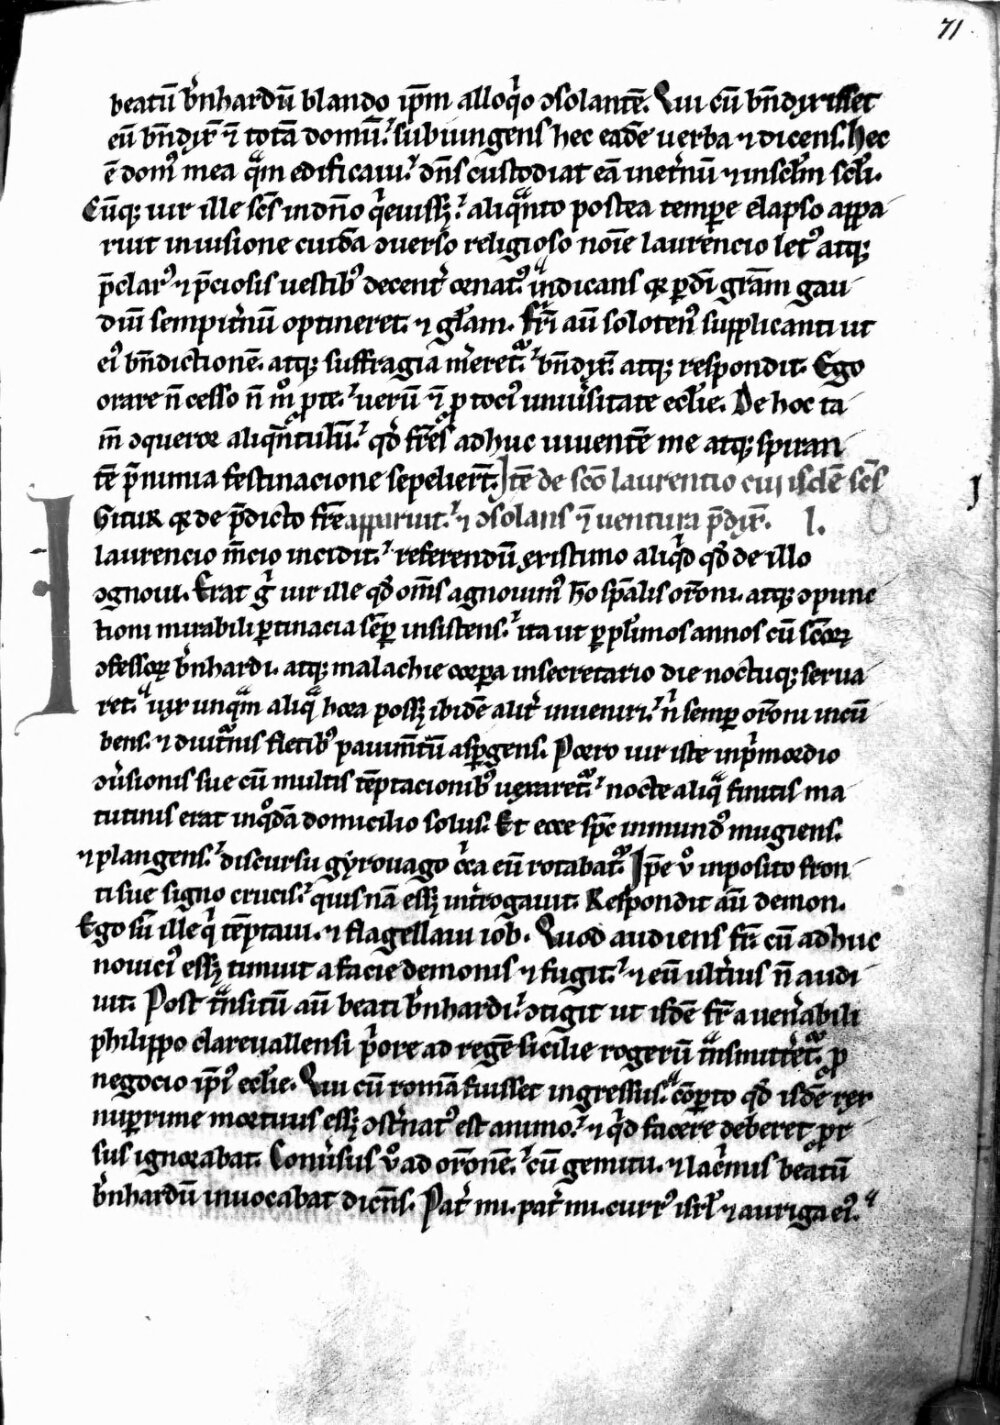 71
beatū b̾nhardū blando ip̄m alloq̾o ɔsolantē. Qui cū bn̄dixisset
eū bn̄dix̄ ⁊ totā domū. subiungens hec eadē uerba ⁊ dicens. Hec
ē domꝰ mea quā edificaui. dn̄s custodiat eā inet̾nū ⁊ insclm̄ scl̄i.
Cūq; uir ille scs̄ indn̄o q̾euiss&. aliqn̄to postea temꝑe elapso appa
ruit inuisione cuidā ɔuerso religioso noīe laurencio letꝰ atq;
p̄clarꝰ ⁊ p̄ciosis uestibꝰ decent̾ ornatꝰ. indicans qꝛ ꝑ dī grām gau
diū sempit̾nū optineret. ⁊ glāꝫ. Fr̄i aū solotenꝰ supplicanti ut
eiꝰ bn̄dictionē. atq; suffragia m̾eret̾. bn̄dix̄. atq; respondit. Ego
orare n̄ cesso n̄ mº ꝓ te. uerū ⁊ ꝓ tociꝰ uniu̾sitate eccl̄ie. De hoc ta
m̄ ɔqueror aliqn̄tulū. qd̾ fr̄es adhuc uiuentē me atq; spiran
tē p̄ nimia festinacione sepelier̄t. Itē de sc̄o laurentio cui isdē scs̄
Gitur qꝛ de p̄dicto fr̄e apparuit. ⁊ ɔsolans ⁊ uentura p̄dix̄. I.
laurencio m̄cio incidit. referendū existimo aliq̾d qd̾ de illo
ɔgnoui. Erat g̾ uir ille qd̾ om̄s agnouimꝰ hō sp̄alis orōni. atq; ɔpunc
tioni mirabili ꝑtinacia semꝑ insistens. ita ut ꝑ pl̾imos annos cū scōꝝ
ɔfessoꝝ b̾nhardi. atq; malachie corpa insecretario die noctuq; serua
ret. uix unquā aliqͣ hora poss& ibidē alit̾ inueniri. n̾ semꝑ orōni incū
bens. ⁊ diut̾nis fletibꝰ pauim̄tū asꝑgens. Porro uir iste inp̾mordio
ɔu̾sionis sue cū multis tēptacionibꝰ uexaret̾. nocte aliqͣ finitis ma
tutinis erat inqͦdā domicilio solus. Et ecce spc̄ inmundꝰ mugiens.
⁊ plangens. discursu gyrouago c̾ca eū rotabat̾. Ip̄e uº inposito fron
ti sue signo crucis. quis nā ess& int̾rogauit. Respondit aū demon.
Ego sū ille q̾ tēptaui. ⁊ flagellaui iob. Quod audiens fr̄. cū adhuc
nouiciꝰ ess& timuit a facie demonis ⁊ fugit. ⁊ eū ult̾ius n̄ audi
uit. Post tͣnsitū aū beati b̾nhardi. ɔtigit ut isdē fr̄ a uen̾abili
philippo clareuallensi p̾ore ad regē sicilie rogerū tͣnsmitt̾et̾. ꝓ
negocio ip̄iꝰ eccl̄ie. Qui cū romā fuisset ingressus. cōꝑto qd̾ isdē rex
nuꝑrime mortuus ess& ɔst̾natꝰ est animo. ⁊ q̾d facere deberet ꝓr
sus ignorabat. Conu̾sus uº ad orōnē. cū gemitu. ⁊ lac̾mis beatū
b̾nhardū inuocabat dicn̄s. Pat̾ mi. pat̾ mi. currꝰ isrl̄ ⁊ auriga eiꝰ.